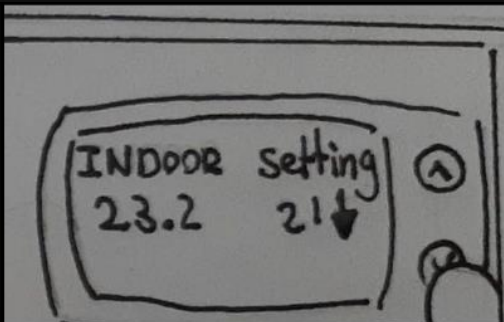 INDOOR Setting
23.2 21↓